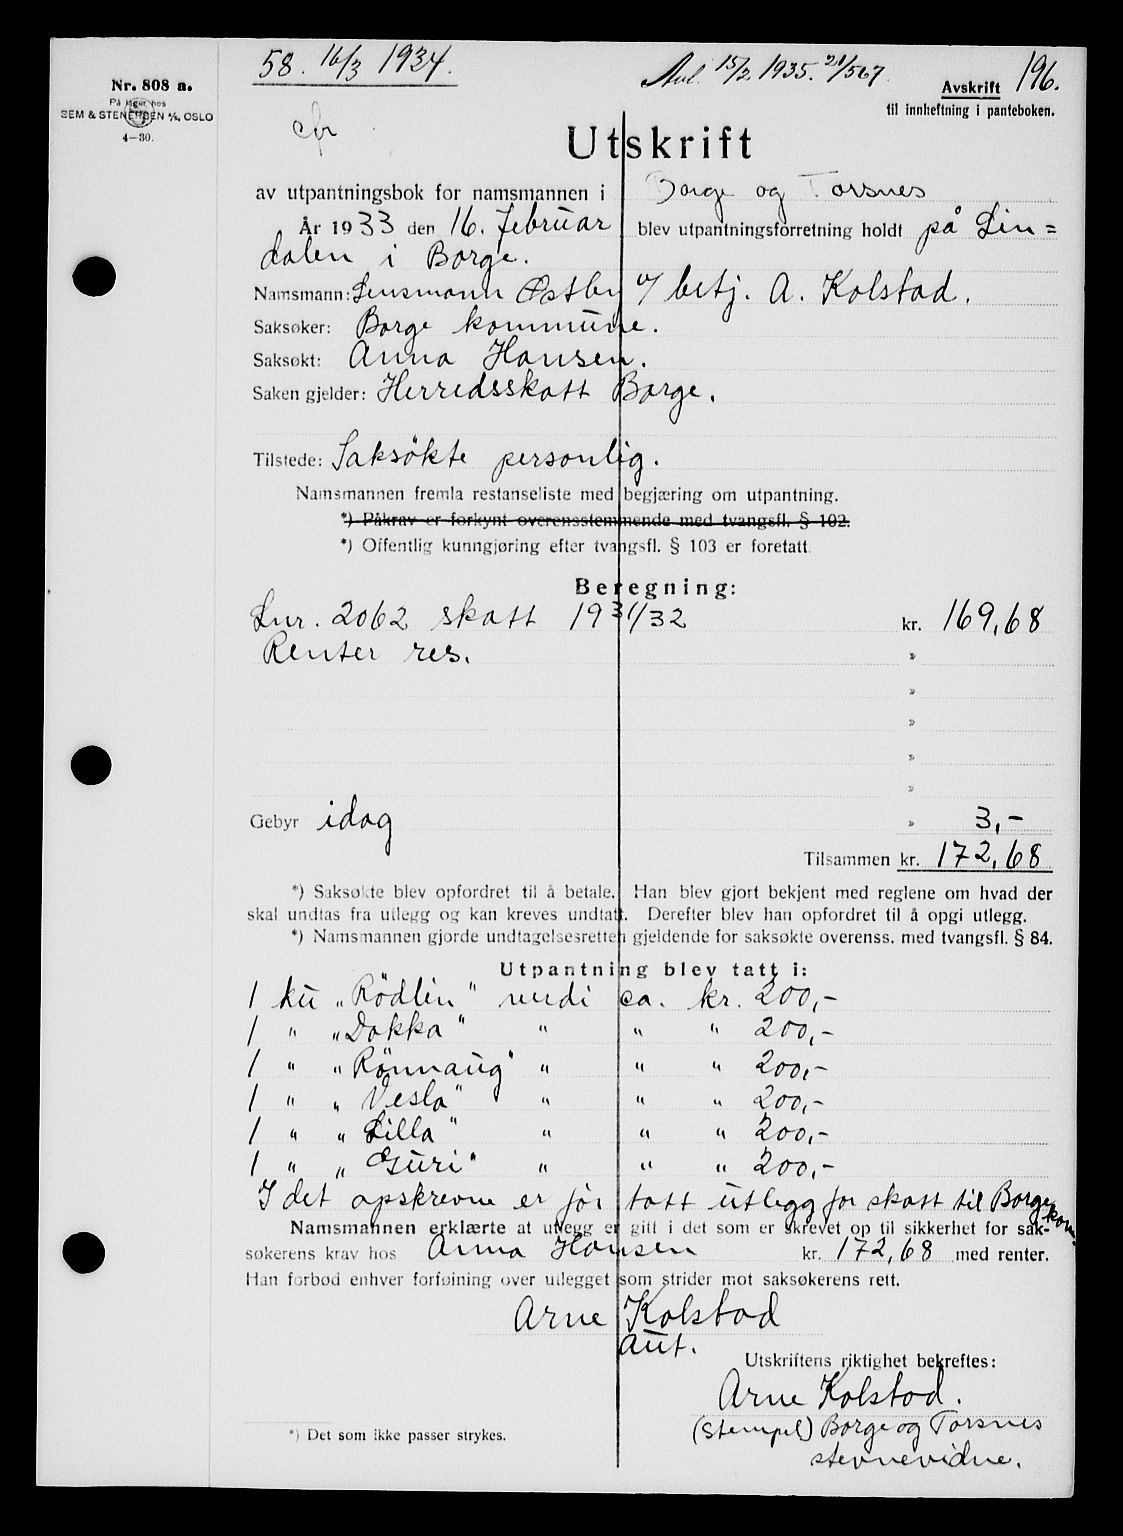 58. 16/3 1934.
Avl. 15/2 1935. 21/567
196.
Nr. 808 a.
På lager hos
SEM & STENERSEN A/S, OSLO
4-30.
Avskrift
til innheftning i panteboken.
cfr
Utskrift
av utpantningsbok for namsmannen i Borge og Torsnes
År 1933 den 16. februar blev utpantningsforretning holdt på Lin=
dalen i Borge.
Namsmann: Lensmann Østby v/ betj. A. Kolstad.
Saksøker: Borge kommune.
Saksøkt: Anna Hansen.
Saken gjelder: Herredsskatt Borge.
Tilstede: Saksökte personlig.
Namsmannen fremla restanseliste med begjæring om utpantning.
*) Påkrav er forkynt overensstemmende med tvangsfl. § 102.
*) Offentlig kunngjøring efter tvangsfl. § 103 er foretatt.
Beregning:
Lnr. 2062 skatt 1931/32 kr. 169,68
Renter res. »
»
»
»
»
Gebyr idag » 3,-
Tilsammen kr. 172,68
*) Saksøkte blev opfordret til å betale. Han blev gjort bekjent med reglene om hvad der
skal undtas fra utlegg og kan kreves undtatt. Derefter blev han opfordret til å opgi utlegg.
*) Namsmannen gjorde undtagelsesretten gjeldende for saksøkte overenss. med tvangsfl. § 84.
Utpantning blev tatt i:
1 ku „Rödlin" verdi ca. kr. 200,-
1 " „Dokka" " " " 200,-
1 " „Rönnaug" " " " 200,-
1 " „Vesla" " " " 200,-
1 " „Lilla" " " " 200,-
1 " „Guri" " " " 200,-
I det opskrevne er før tatt utlegg for skatt til Borge kom.
Namsmannen erklærte at utlegg er gitt i det som er skrevet op til sikkerhet for sak-
søkerens krav hos Anna Hansen kr. 172,68 med renter.
Han forbød enhver forføining over utlegget som strider mot saksøkerens rett.
Arne Kolstad
aut.
Utskriftens riktighet bekreftes:
Arne Kolstad.
(Stempel) Borge og Torsnes
stevnevidne.
*) Det som ikke passer strykes.